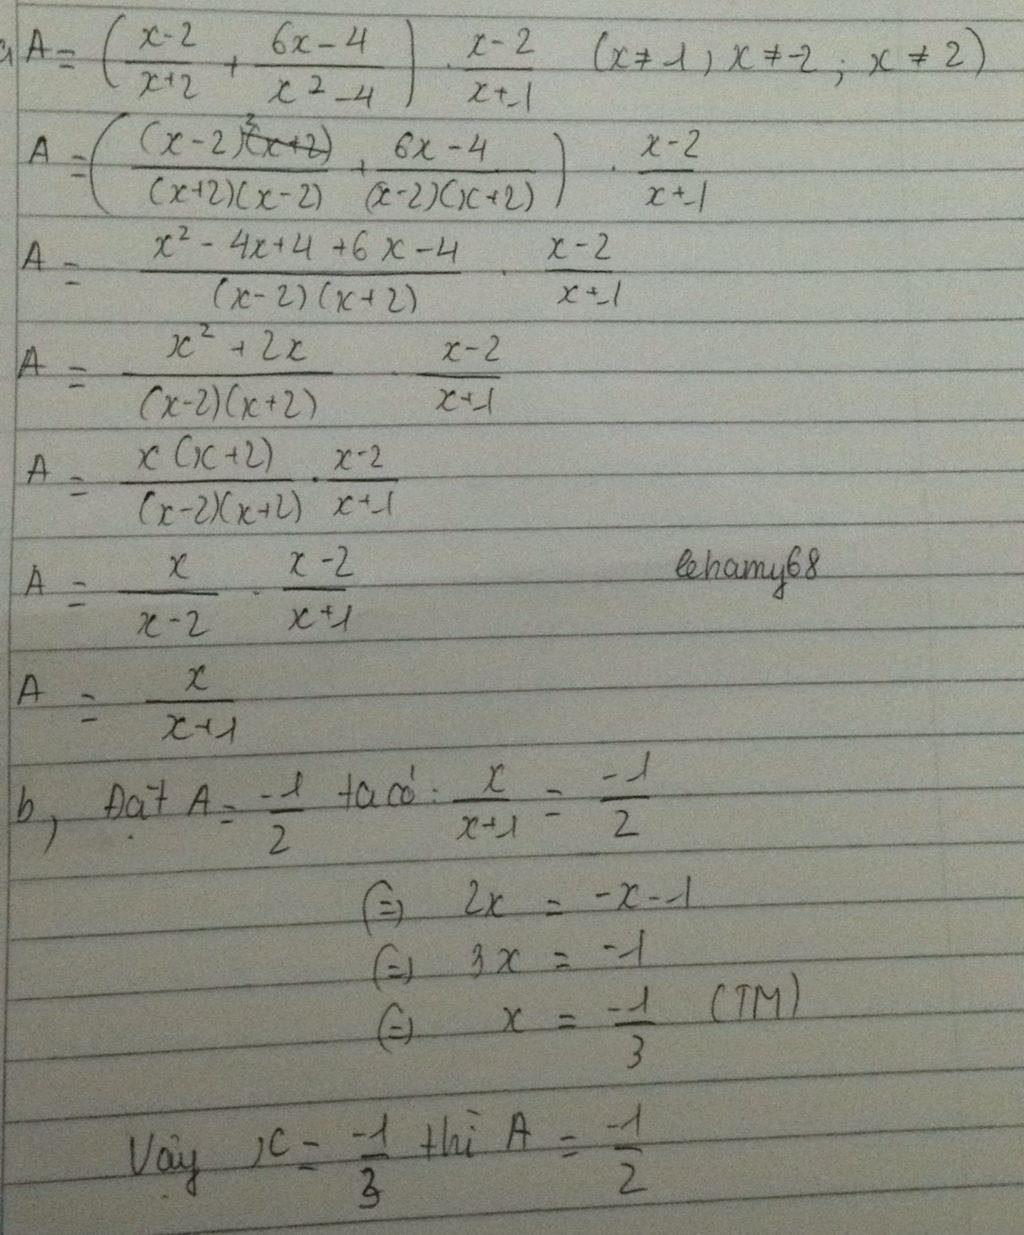 a, A = ( (x-2)/(x+2) + (6x-4)/(x²-4) ) . (x-2)/(x+1) (x ≠ 1 ; x ≠ -2 ; x ≠ 2)
A = ( (x-2)²/((x+2)(x-2)) + (6x-4)/((x-2)(x+2)) ) . (x-2)/(x+1)
A = (x² - 4x + 4 + 6x - 4)/((x-2)(x+2)) . (x-2)/(x+1)
A = (x² + 2x)/((x-2)(x+2)) . (x-2)/(x+1)
A = x(x+2)/((x-2)(x+2)) . (x-2)/(x+1)
A = x/(x-2) . (x-2)/(x+1)
lehamy68
A = x/(x+1)
b, Đặt A = -1/2 ta có : x/(x+1) = -1/2
(=) 2x = -x-1
(=) 3x = -1
(=) x = -1/3 (TM)
Vậy x = -1/3 thì A = -1/2